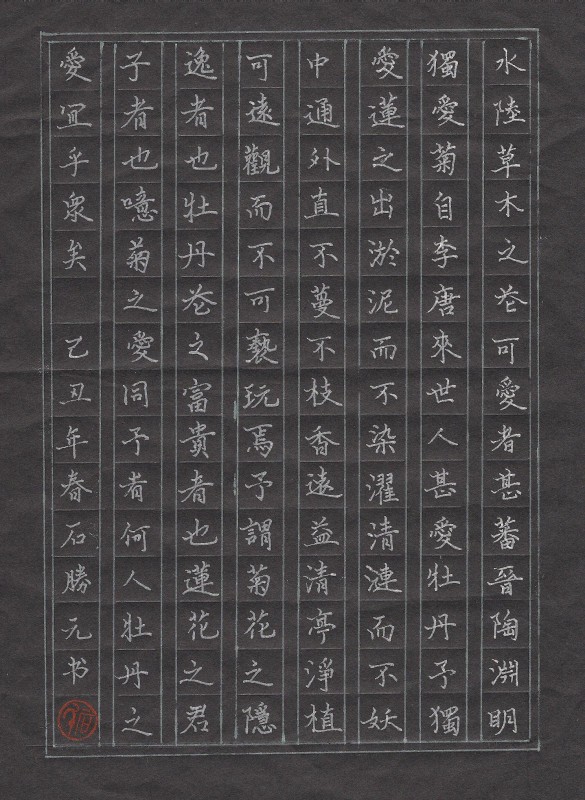 水陸草木之花可愛者甚蕃晉陶淵明
獨愛菊自李唐來世人甚愛牡丹予獨
愛蓮之出淤泥而不染濯清漣而不妖
中通外直不蔓不枝香遠益清亭淨植
可遠觀而不可褻玩焉予謂菊花之隱
逸者也牡丹花之富貴者也蓮花之君
子者也噫菊之愛同予者何人牡丹之
愛宜乎眾矣 乙丑年春石勝元书